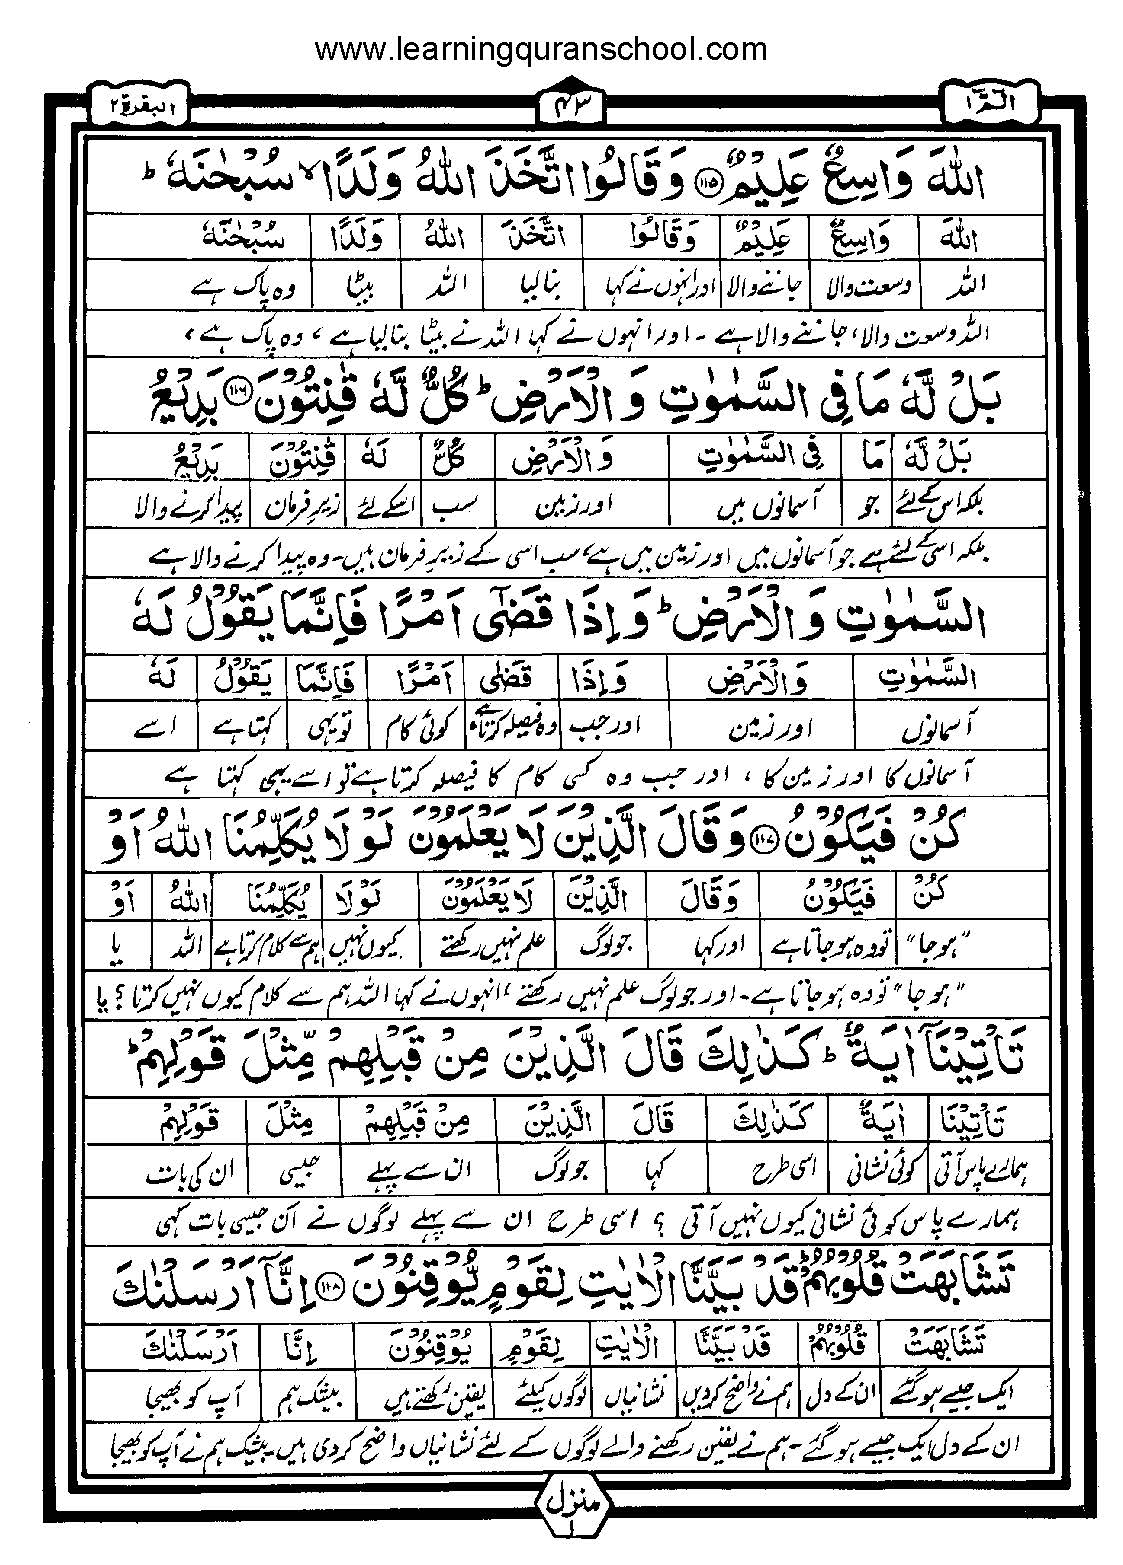 www.learningquranschool.com
الٓمّٓ ١
٤٣
البقرة ٢
اللّٰهَ وَاسِعٌ عَلِيْمٌ ﴿١١٥﴾ وَقَالُوا اتَّخَذَ اللّٰهُ وَلَدًا ۙ سُبْحٰنَهٗ ؕ
اللّٰهَ وَاسِعٌ عَلِيْمٌ وَقَالُوا اتَّخَذَ اللّٰهُ وَلَدًا سُبْحٰنَهٗ
اللہ وسعت والا جاننے والا اور انہوں نے کہا بنا لیا اللہ بیٹا وہ پاک ہے
اللہ وسعت والا، جاننے والا ہے ۔ اور انہوں نے کہا اللہ نے بیٹا بنا لیا ہے، وہ پاک ہے،
بَلْ لَّهٗ مَا فِي السَّمٰوٰتِ وَ الْاَرْضِ ؕ كُلٌّ لَّهٗ قٰنِتُوْنَ ﴿١١٦﴾ بَدِيْعُ
بَلْ لَّهٗ مَا فِي السَّمٰوٰتِ وَ الْاَرْضِ كُلٌّ لَهٗ قٰنِتُوْنَ بَدِيْعُ
بلکہ اس کے لئے جو آسمانوں میں اور زمین سب اسکے لئے زیر فرمان پیدا کرنے والا
بلکہ اسی کے لئے ہے جو آسمانوں میں اور زمین میں ہے، سب اسی کے زیرِ فرمان ہیں۔ وہ پیدا کرنے والا ہے
السَّمٰوٰتِ وَ الْاَرْضِ ؕ وَ اِذَا قَضٰٓى اَمْرًا فَاِنَّمَا يَقُوْلُ لَهٗ
السَّمٰوٰتِ وَ الْاَرْضِ وَ اِذَا قَضٰٓى اَمْرًا فَاِنَّمَا يَقُوْلُ لَهٗ
آسمانوں اور زمین اور جب وہ فیصلہ کرتا ہے کوئی کام تو یہی کہتا ہے اسے
آسمانوں کا اور زمین کا، اور جب وہ کسی کام کا فیصلہ کرتا ہے تو اسے یہی کہتا ہے
كُنْ فَيَكُوْنُ ﴿١١٧﴾ وَقَالَ الَّذِيْنَ لَا يَعْلَمُوْنَ لَوْلَا يُكَلِّمُنَا اللّٰهُ اَوْ
كُنْ فَيَكُوْنُ وَقَالَ الَّذِيْنَ لَا يَعْلَمُوْنَ لَوْلَا يُكَلِّمُنَا اللّٰهُ اَوْ
"ہوجا" تو وہ ہو جاتا ہے اور کہا جو لوگ علم نہیں رکھتے کیوں نہیں ہم سے کلام کرتا ہے اللہ یا
"ہوجا" تو وہ ہو جاتا ہے۔ اور جو لوگ علم نہیں رکھتے، انہوں نے کہا اللہ ہم سے کلام کیوں نہیں کرتا؟ یا
تَاْتِيْنَآ اٰيَةٌ ؕ كَذٰلِكَ قَالَ الَّذِيْنَ مِنْ قَبْلِهِمْ مِّثْلَ قَوْلِهِمْ ؕ
تَاْتِيْنَا اٰيَةٌ كَذٰلِكَ قَالَ الَّذِيْنَ مِنْ قَبْلِهِمْ مِثْلَ قَوْلِهِمْ
ہمارے پاس آتی کوئی نشانی اسی طرح کہا جو لوگ ان سے پہلے جیسی ان کی بات
ہمارے پاس کوئی نشانی کیوں نہیں آتی؟ اسی طرح ان سے پہلے لوگوں نے ان جیسی بات کہی
تَشَابَهَتْ قُلُوْبُهُمْ ؕ قَدْ بَيَّنَّا الْاٰيٰتِ لِقَوْمٍ يُّوْقِنُوْنَ ﴿١١٨﴾ اِنَّآ اَرْسَلْنٰكَ
تَشَابَهَتْ قُلُوْبُهُمْ قَدْ بَيَّنَّا الْاٰيٰتِ لِقَوْمٍ يُوْقِنُوْنَ اِنَّا اَرْسَلْنٰكَ
ایک جیسے ہو گئے ان کے دل ہم نے واضح کر دیں نشانیاں لوگوں کیلئے یقین رکھتے ہیں بیشک ہم آپ کو بھیجا
ان کے دل ایک جیسے ہو گئے۔ ہم نے یقین رکھنے والے لوگوں کے لئے نشانیاں واضح کر دی ہیں۔ بیشک ہم نے آپ کو بھیجا
منزل
١